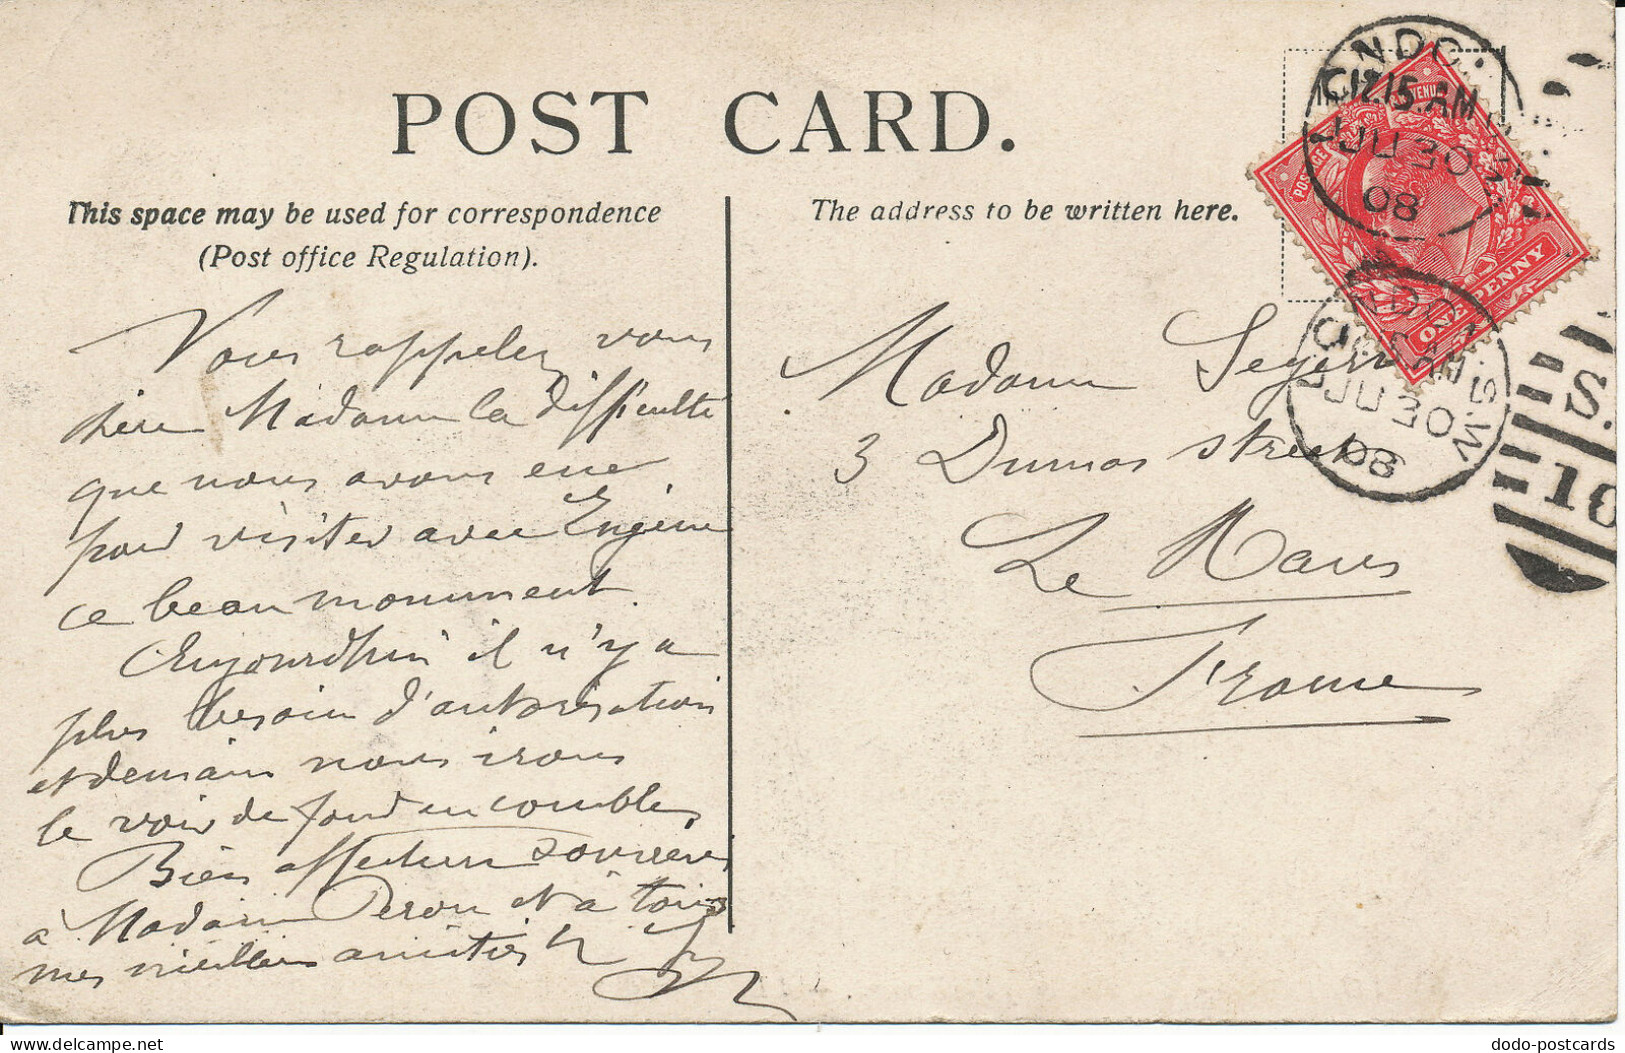 POST CARD.
This space may be used for correspondence
(Post office Regulation).
The address to be written here.
Vous rappelez vous
chère Madame la difficulté
que nous avons eue
pour visiter avec Eugène
ce beau monument.
Aujourd'hui il n'y a
plus besoin d'autorisation
et demain nous irons
le voir de fond en combles
Bien affectueux souvenirs
à Madame Peron et à tous
mes meilleures amitiés
Madame
3 Dumas street
Le Mans
France
POSTAGE
REVENUE
ONE PENNY
12.15.AM
JU 30
08
S.W
JU 30
08
S.
10
dodo-postcards
delcampe.net